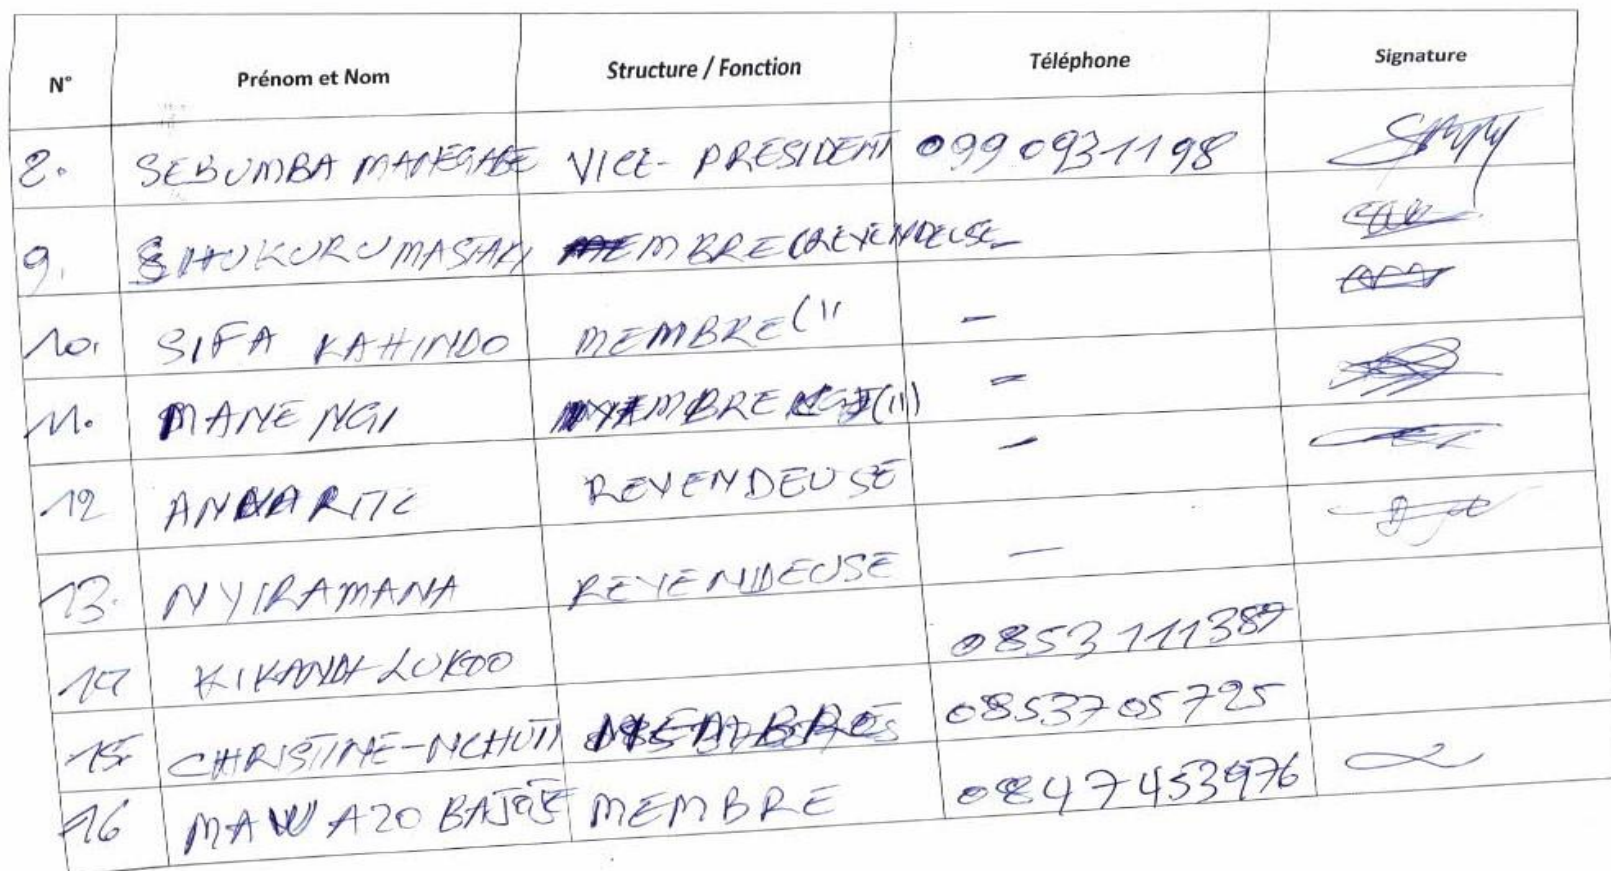 N° Prénom et Nom Structure / Fonction Téléphone Signature
8. SEBUMBA MANEGABE VICE-PRESIDENT 0990931198
9. SHUKURU MASTAKI MEMBRE (REVENDEUSE
10. SIFA KAHINDO MEMBRE (11 -
11. MANENGI MEMBRE (11) -
12 ANNARITE REVENDEUSE -
13. NYIRAMANA REVENDEUSE -
14 KIKANDI LUKOO 0853111387
15. CHRISTINE-NCHUTI MEMBRE 0853705725
16 MAWAZO BAJOJE MEMBRE 0847453976